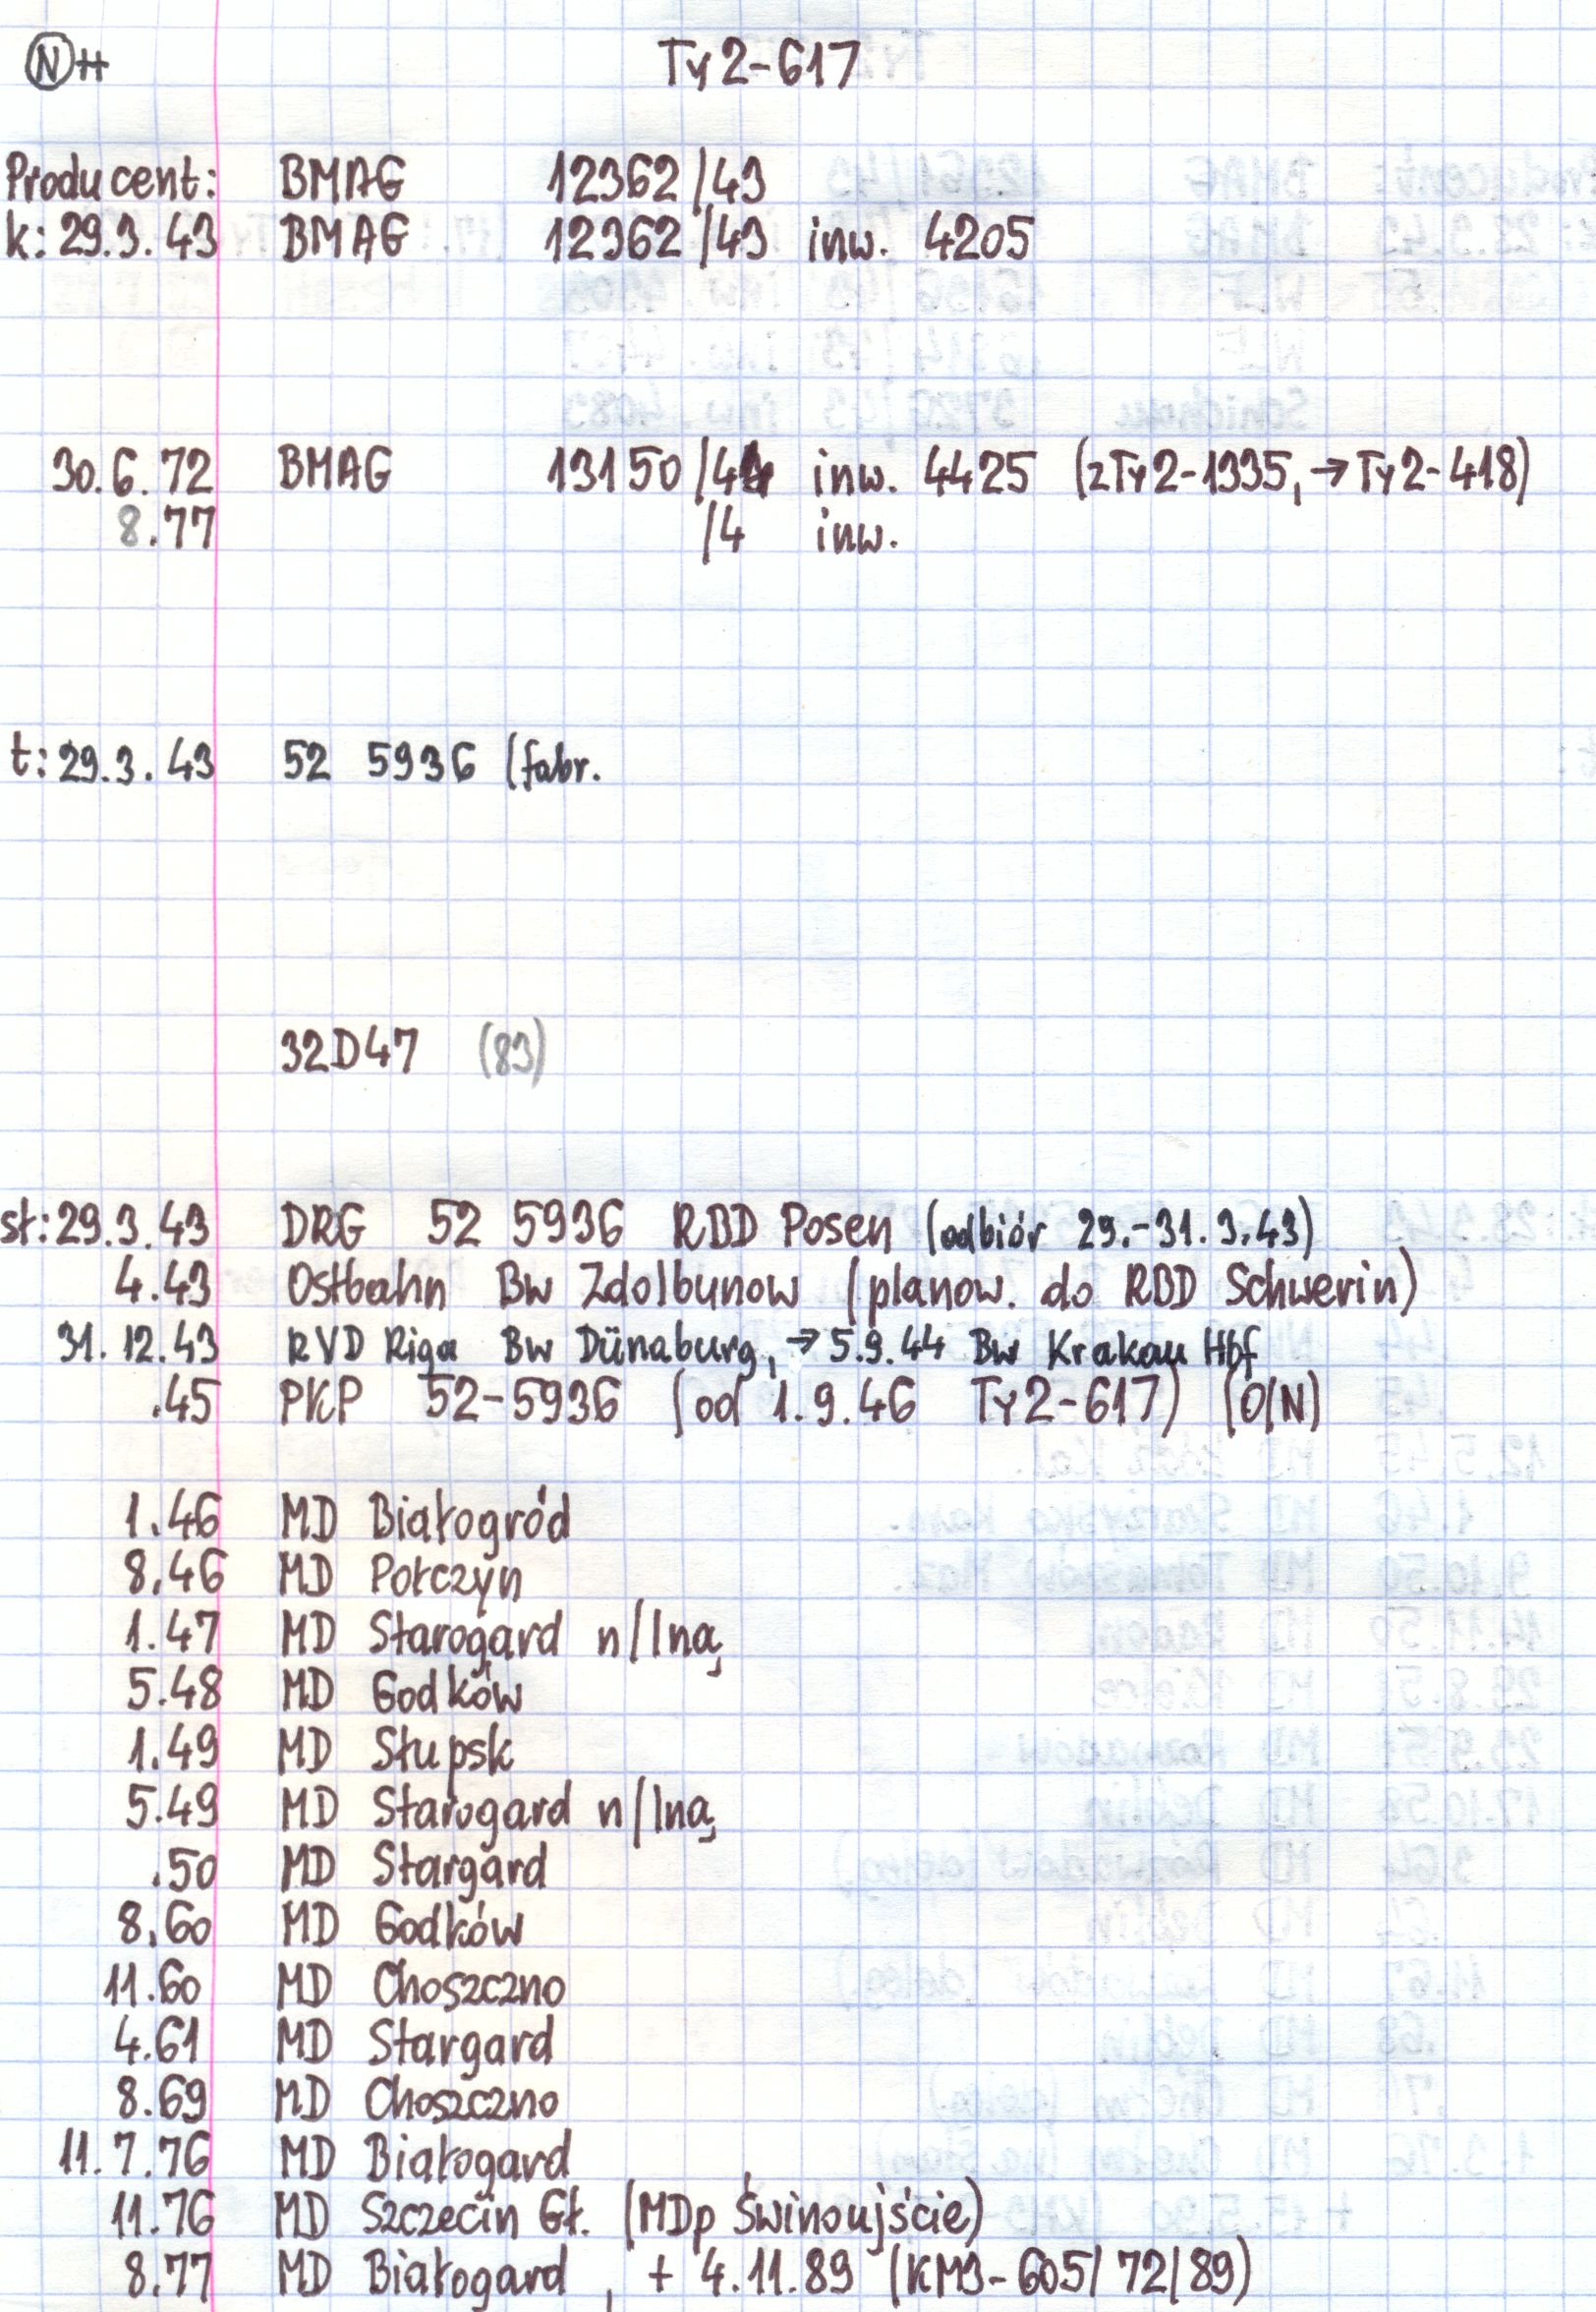 Ⓝ H Ty2-617
Producent: BMAG 12362/43
k: 29.3.43 BMAG 12362/43 inw. 4205
30.6.72 BMAG 13150/44 inw. 4425 (z Ty2-1335, → Ty2-418)
8.77 /4 inw.
t: 29.3.43 52 5936 (fabr.
32D47 (83)
st: 29.3.43 DRG 52 5936 RBD Posen (odbiór 29.-31.3.43)
4.43 Ostbahn Bw Zdolbunow (planow. do RBD Schwerin)
31.12.43 RVD Riga Bw Dünaburg, → 5.9.44 Bw Krakau Hbf
.45 PKP 52-5936 (od 1.9.46 Ty2-617) (O/N)
1.46 MD Białogród
8.46 MD Połczyn
1.47 MD Starogard n/Iną
5.48 MD Godków
1.49 MD Słupsk
5.49 MD Starogard n/Iną
.50 MD Stargard
8.60 MD Godków
11.60 MD Choszczno
4.61 MD Stargard
8.69 MD Choszczno
11.7.76 MD Białogard
11.76 MD Szczecin Gł. (MDp Świnoujście)
8.77 MD Białogard, + 4.11.89 (KM3-605/72/89)